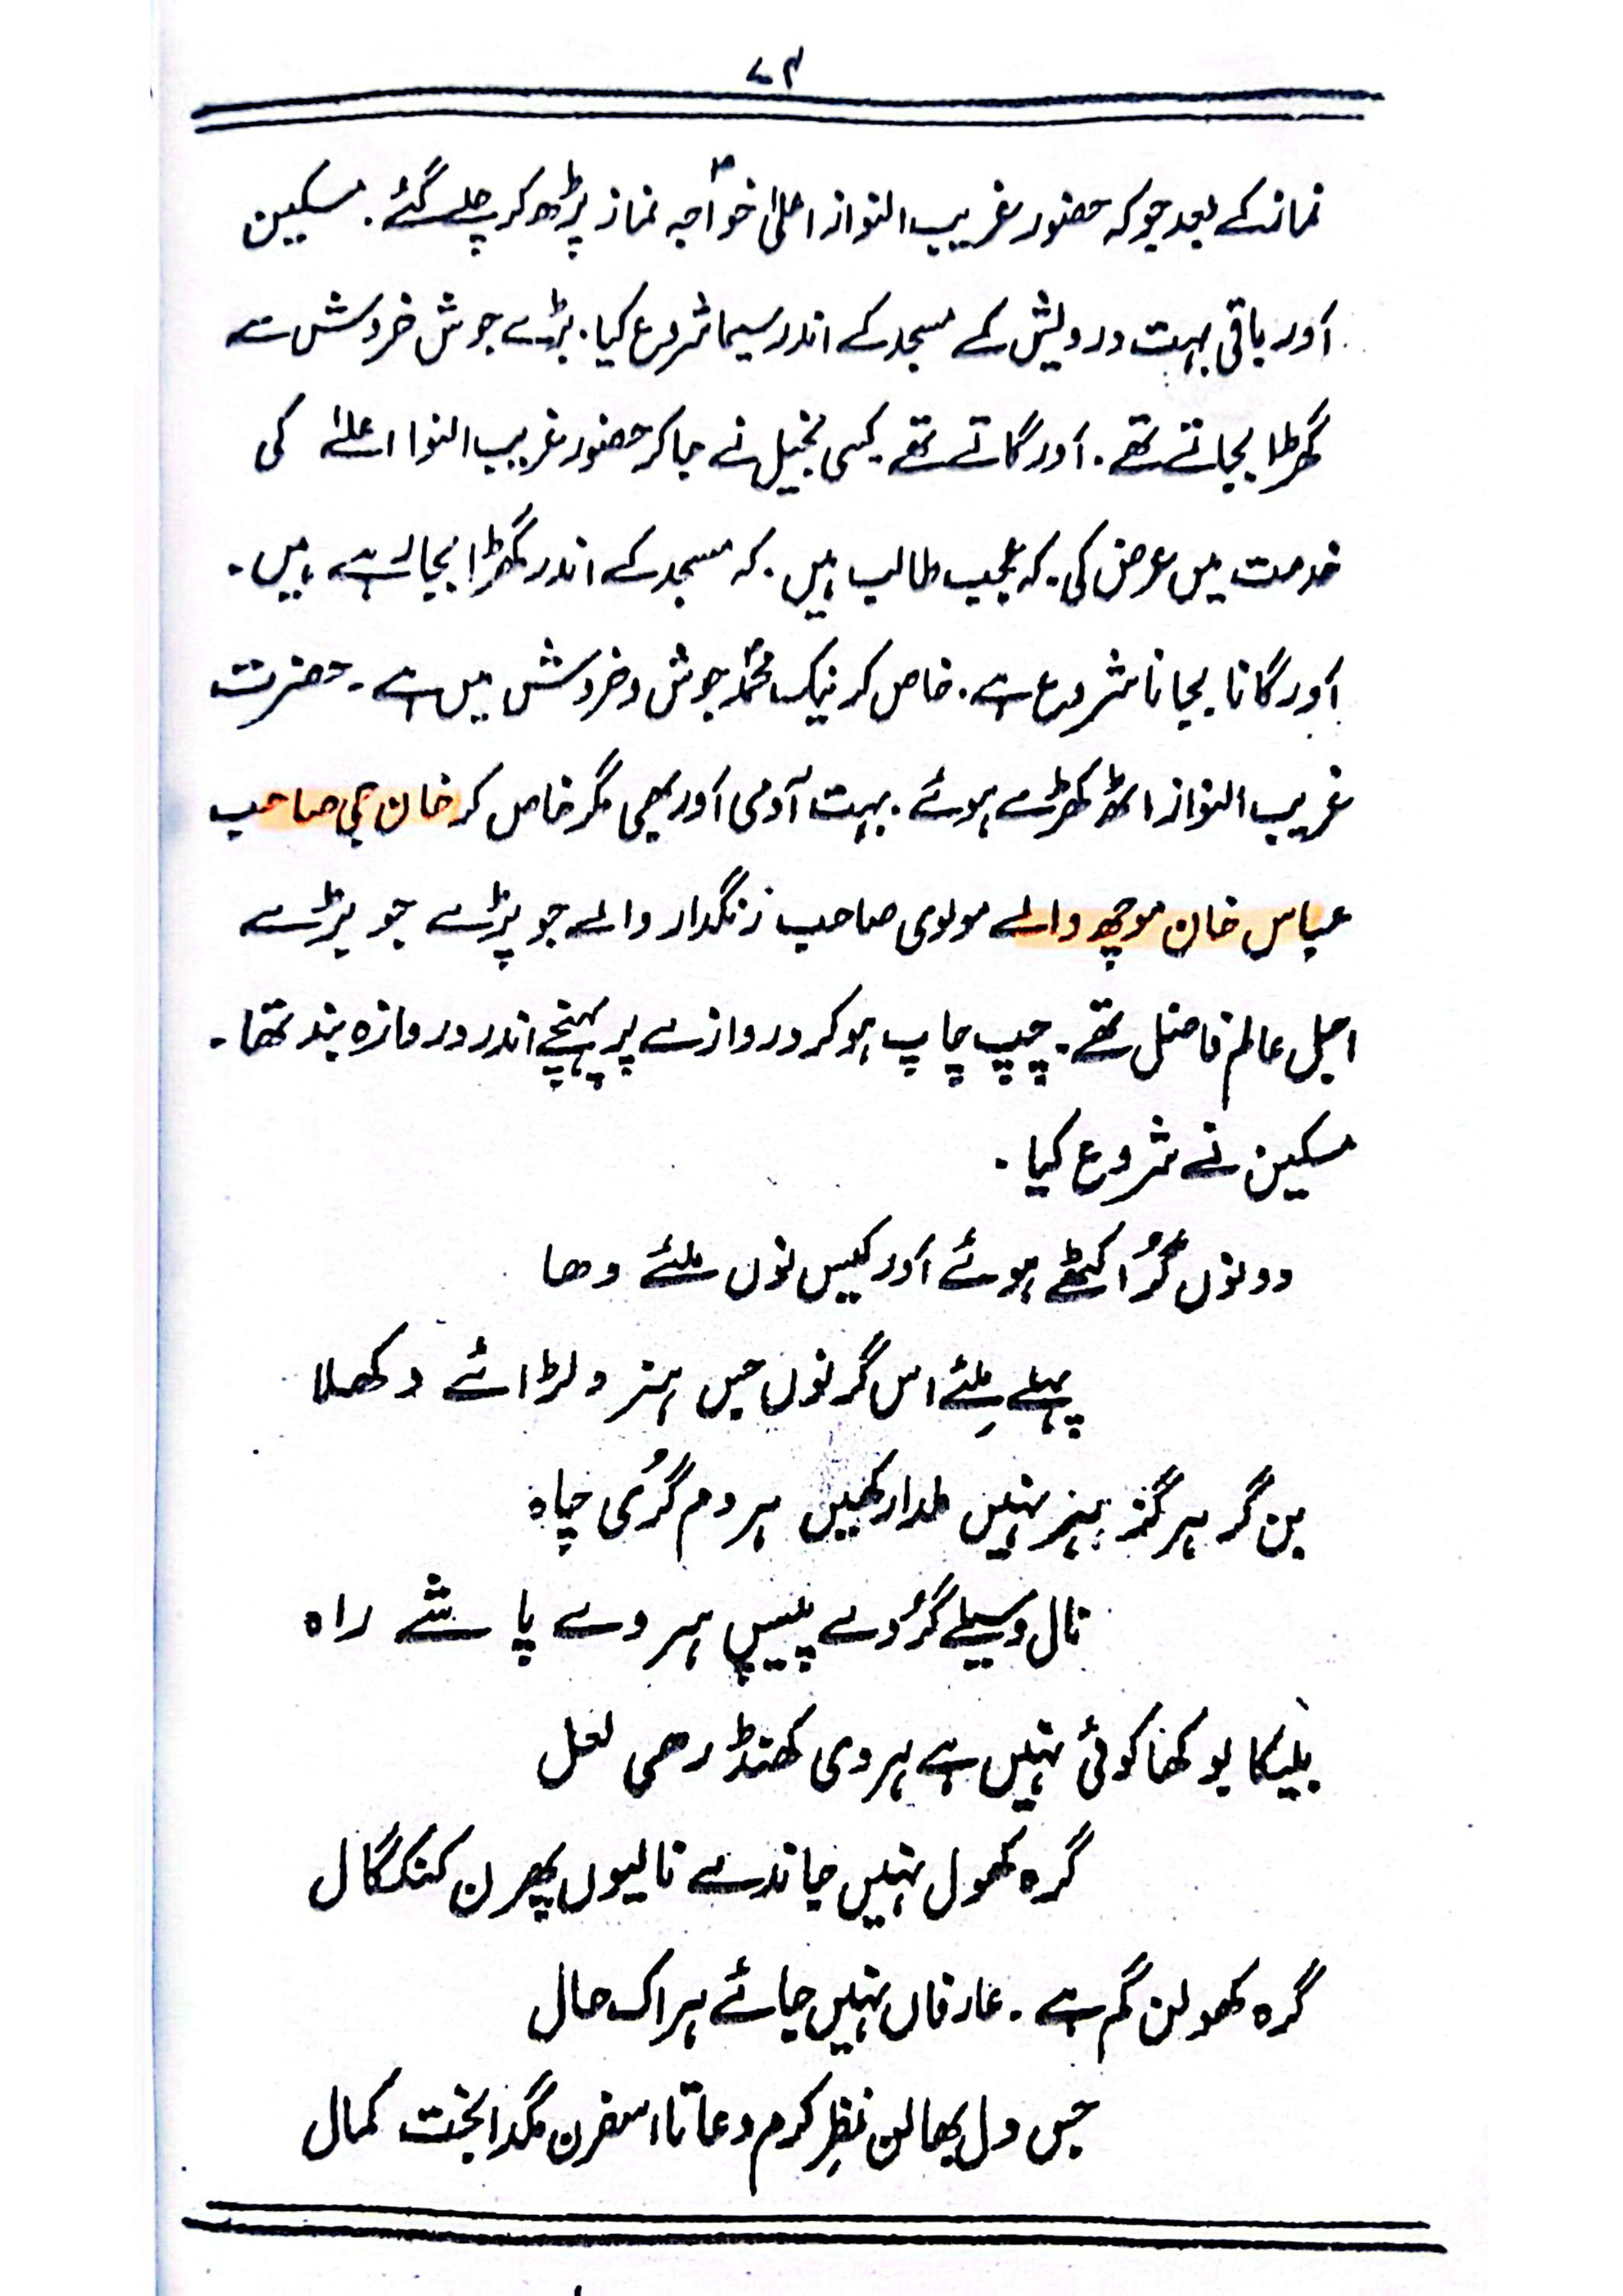 ۷۴
نماز کے بعد جو کہ حضور غریب النواز اعلیٰ خواجہ نماز پڑھ کر چلے گئے. مسکین
اَور باقی بہت درویش کے مسجد کے اندر سیما شروع کیا. بڑے جوش خروش سے
گھڑا بجاتے تھے. اَور گاتے تھے. کسی بخیل نے جا کر حضور غریب النوا اعلےٰ کی
خدمت میں عرض کی. کہ عجیب طالب ہیں. کہ مسجد کے اندر گھڑا بجا رہے ہیں.
اَور گانا بجانا شروع ہے. خاص کر نیک محمدؐ جوش و خروش میں ہے. حضرت
غریب النواز اٹھ کھڑے ہوئے. بہت آدمی اَور بھی مگر خاص کر خان جی صاحب
عباس خان موچھ والے مولوی صاحب زنگدار والے جو پڑے جو بڑے
اجل عالم فاضل تھے. چپ چاپ ہو کر دروازے پر پہنچے اندر دروازہ بند تھا.
مسکین نے شروع کیا.
دونوں گُر اکٹھے ہوئے اَور کیس نوں ملئے دھا
پہلے مِلئے اس گر نوں جس ہنر و لڑائے دکھلا
بن گر ہرگز ہنر نہیں لمدا رکھیں ہر دم گُر کی چاہ
نال وسیلے گُر دے پیسیں ہر دے پاشے راہ
بلیکا بوکھا کوئی نہیں ہے ہر دی کھنڈ رھی لعل
گرہ کھول نہیں جاندے نالیوں پھرن کنگال
گرہ کھولن گم ہے. عارفاں نہیں جائے ہر اک حال
جس ول بھالن نظرِ کرم دعا تا اسفرن مگدا بخت کمال